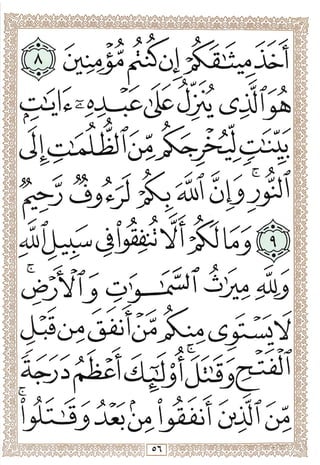 أَخَذَ مِيثَٰقَكُمْ إِن كُنتُم مُّؤْمِنِينَ ٨
هُوَ ٱلَّذِى يُنَزِّلُ عَلَىٰ عَبْدِهِۦٓ ءَايَٰتٍۭ
بَيِّنَٰتٍ لِّيُخْرِجَكُم مِّنَ ٱلظُّلُمَٰتِ إِلَى
ٱلنُّورِ ۚ وَإِنَّ ٱللَّهَ بِكُمْ لَرَءُوفٌ رَّحِيمٌ
٩ وَمَا لَكُمْ أَلَّا تُنفِقُوا۟ فِى سَبِيلِ ٱللَّهِ
وَلِلَّهِ مِيرَٰثُ ٱلسَّمَٰوَٰتِ وَٱلْأَرْضِ ۚ
لَا يَسْتَوِى مِنكُم مَّنْ أَنفَقَ مِن قَبْلِ
ٱلْفَتْحِ وَقَٰتَلَ ۚ أُو۟لَٰٓئِكَ أَعْظَمُ دَرَجَةً
مِّنَ ٱلَّذِينَ أَنفَقُوا۟ مِنۢ بَعْدُ وَقَٰتَلُوا۟ ۚ
٥٦